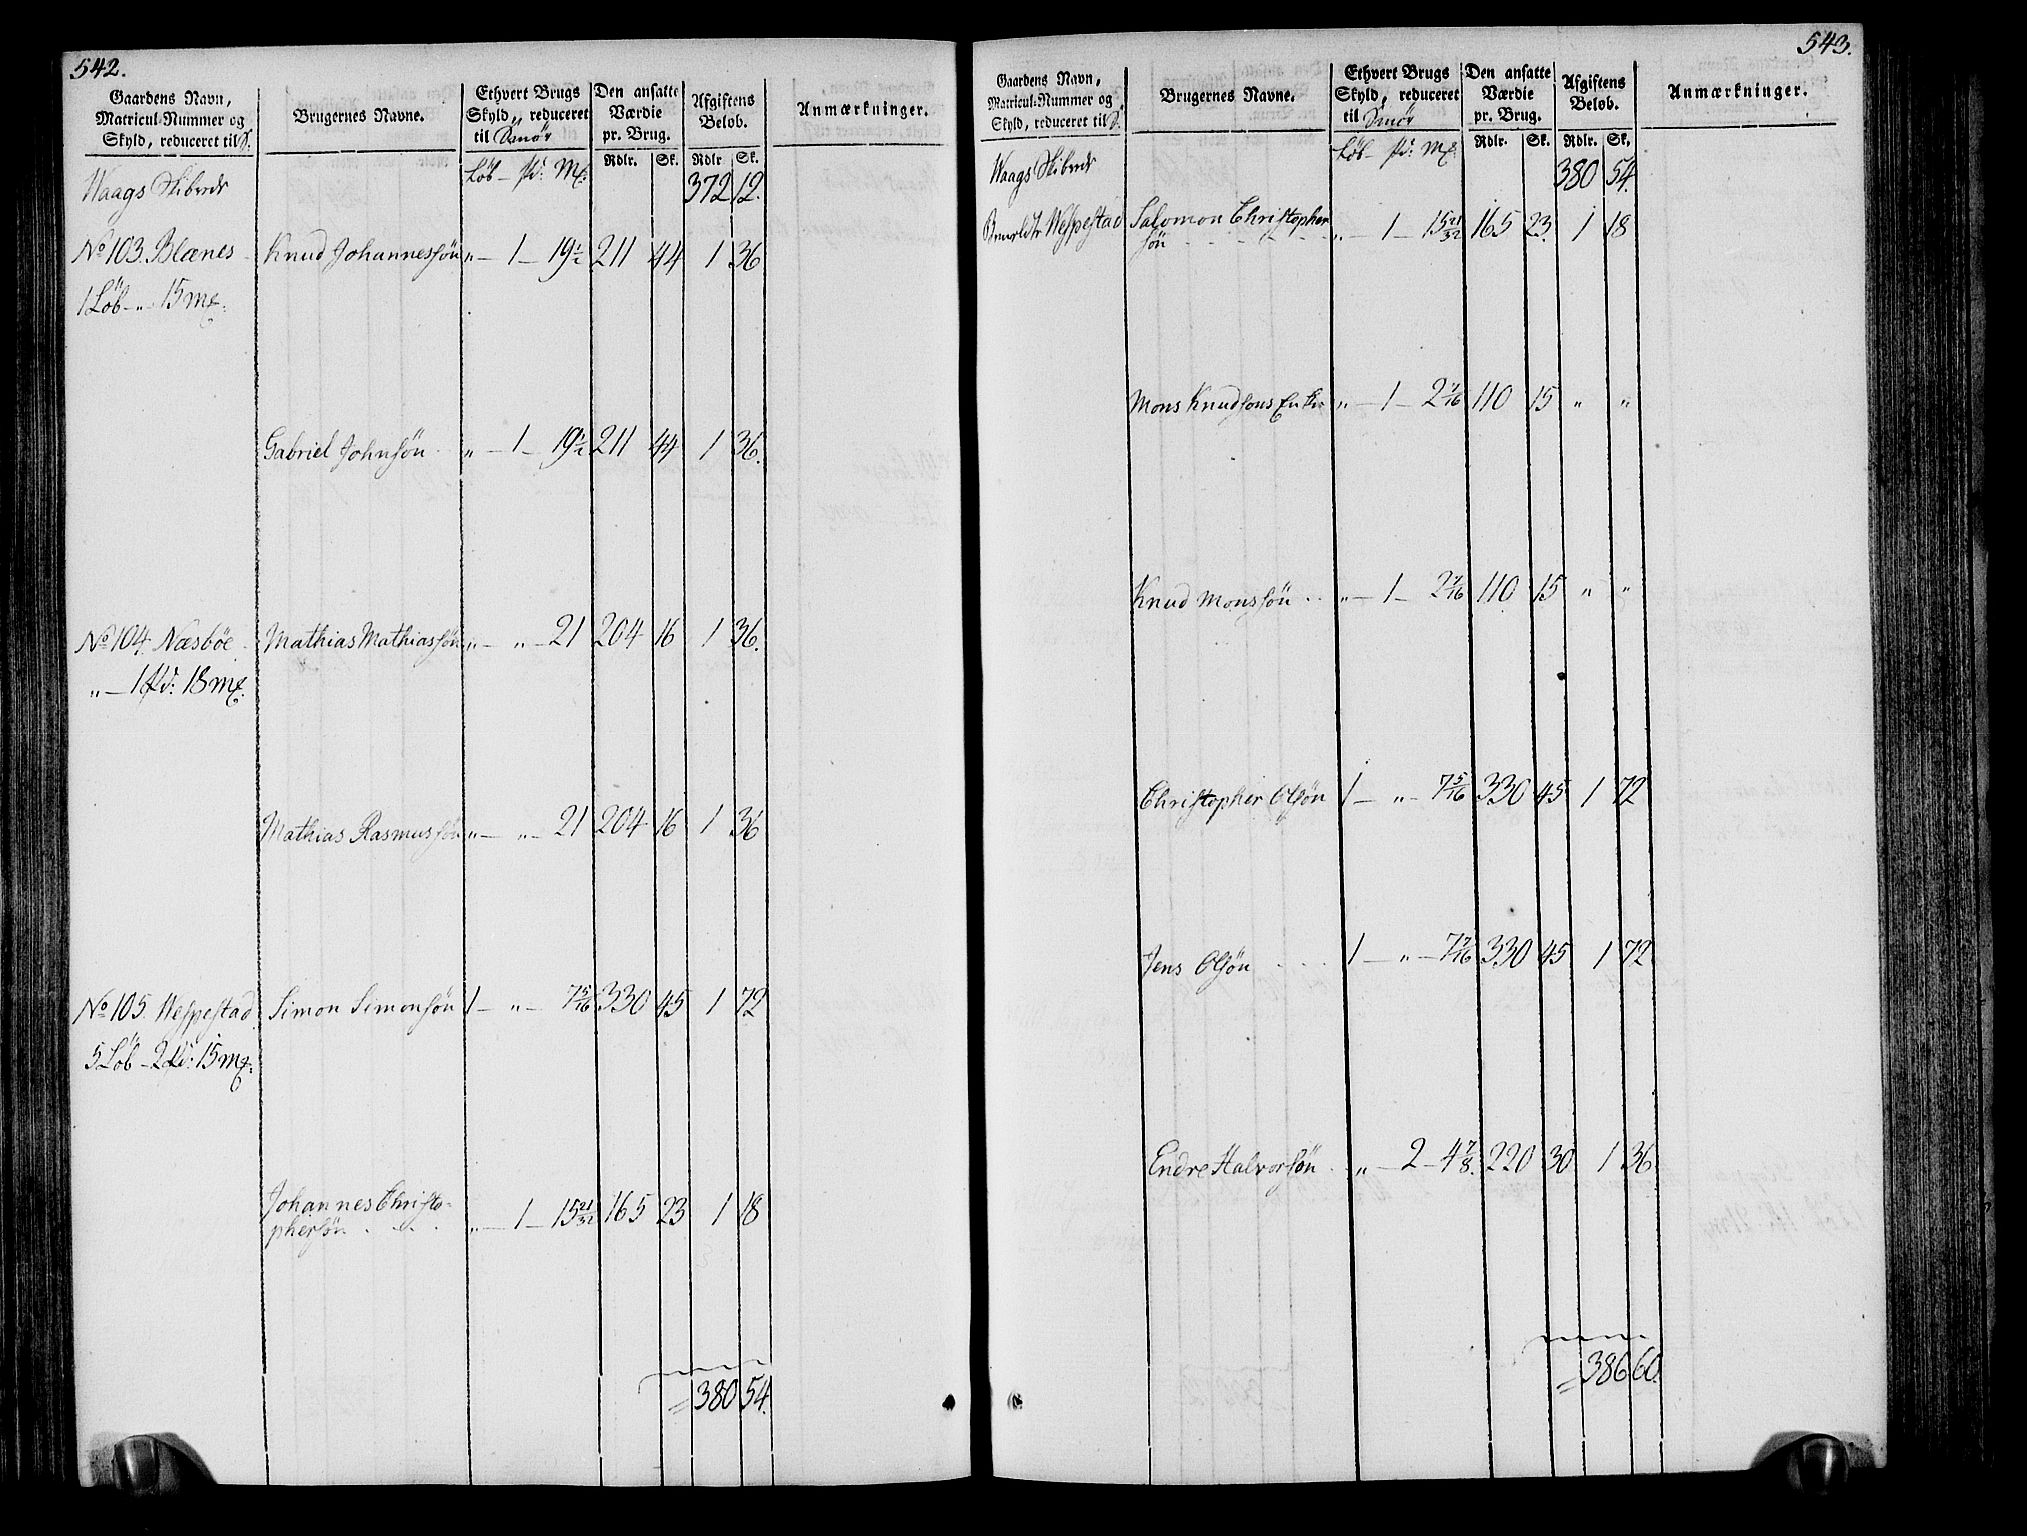 542.
Gaardens Navn, Matricul-Nummer og Skyld, reduceret til S.
Brugernes Navne.
Ethvert Brugs Skyld, reduceret til Smör
Den ansatte Værdie pr. Brug.
Afgiftens Beløb.
Anmærkninger.
Löb – Pd: Mk: Rdlr. Sk. Rdlr Sk.
Waags Skibrede 372 12.
No 103. Blænes Knud Johannessön „ – 1 – 19½ 211 44 1 36
1 Löb – „ – 15 Mk:
Gabriel Johnsön „ – 1 – 19½ 211 44 1 36.
No 104. Næsböe Mathias Mathiassön „ – „ – 21 204 16 1 36.
„ – 1 Pd: 18 Mk.
Mathias Rasmussön „ – „ – 21 204 16 1 36
No 105. Wespestad Simon Simonsön 1 – „ – 7 5/16 330 45 1 72
5 Löb – 2 Pd: 15 Mk:
Johannes Christo-
phersön „ – 1 – 15 21/32 165 23 1 18
380 54.
543.
Gaardens Navn, Matricul-Nummer og Skyld, reduceret til S.
Brugernes Navne.
Ethvert Brugs Skyld, reduceret til Smör
Den ansatte Værdie pr. Brug.
Afgiftens Beløb.
Anmærkninger.
Löb – Pd: Mk: Rdlr. Sk. Rdlr. Sk.
Waags Skibrede 380 54.
Wespestad Salomon Christopher
sön „ – 1 – 15 21/32 165 23. 1 18
Mons Knudsons Enke „ – 1 – 2 7/16 110 15 „ „
Knud Monssön „ – 1 – 2 7/16 110 15 „ „
Christopher Olsön 1 – „ – 7 5/16 330 45 1 72
Jens Olsön 1 – „ – 7 7/16 330 45 1 72
Endre Halvorsön „ – 2 – 4 7/8. 220 30 1 36.
386 60.